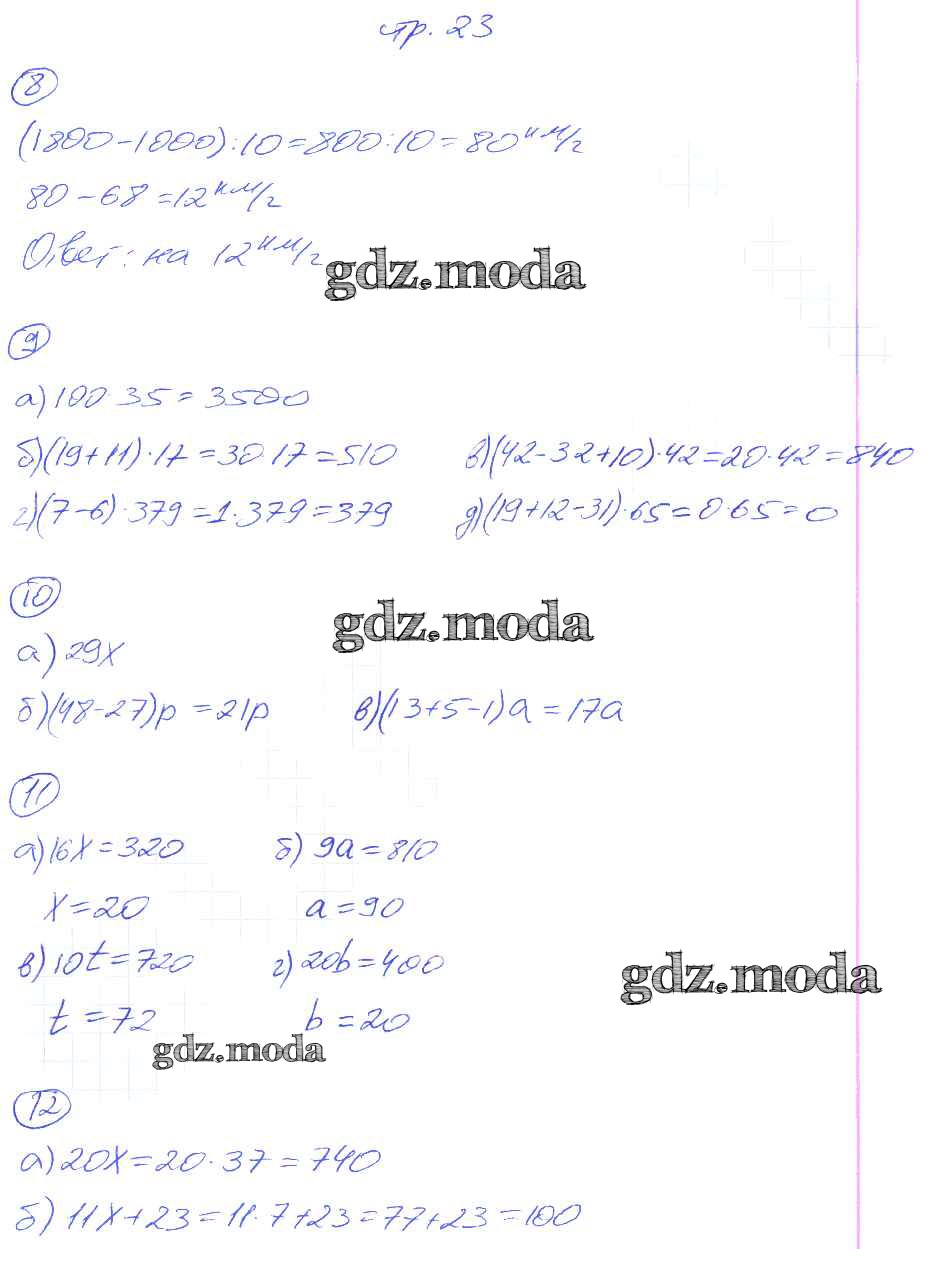 стр. 23
8
(1800-1000):10=800:10=80 км/г
80-68=12 км/г
Ответ: на 12 км/г
gdz.moda
9
а) 100·35=3500
б) (19+11)·17=30·17=510 в) (42-32+10)·42=20·42=840
г) (7-6)·379=1·379=379 д) (19+12-31)·65=0·65=0
10
gdz.moda
а) 29x
б) (48-27)p=21p в) (13+5-1)a=17a
11
а) 16x=320 б) 9a=810
x=20 a=90
в) 10t=720 г) 20b=400
gdz.moda
t=72 b=20
gdz.moda
12
а) 20x=20·37=740
б) 11x+23=11·7+23=77+23=100